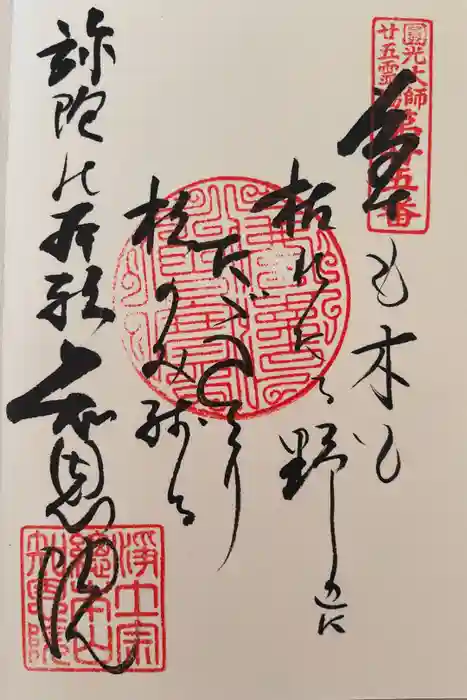 圓光大師
廿五霊場第廿五番
草も木も
枯れたる野辺に
たゞひとり
松のみ残る
弥陀の本願 知恩院
淨土宗
總本山
知恩院